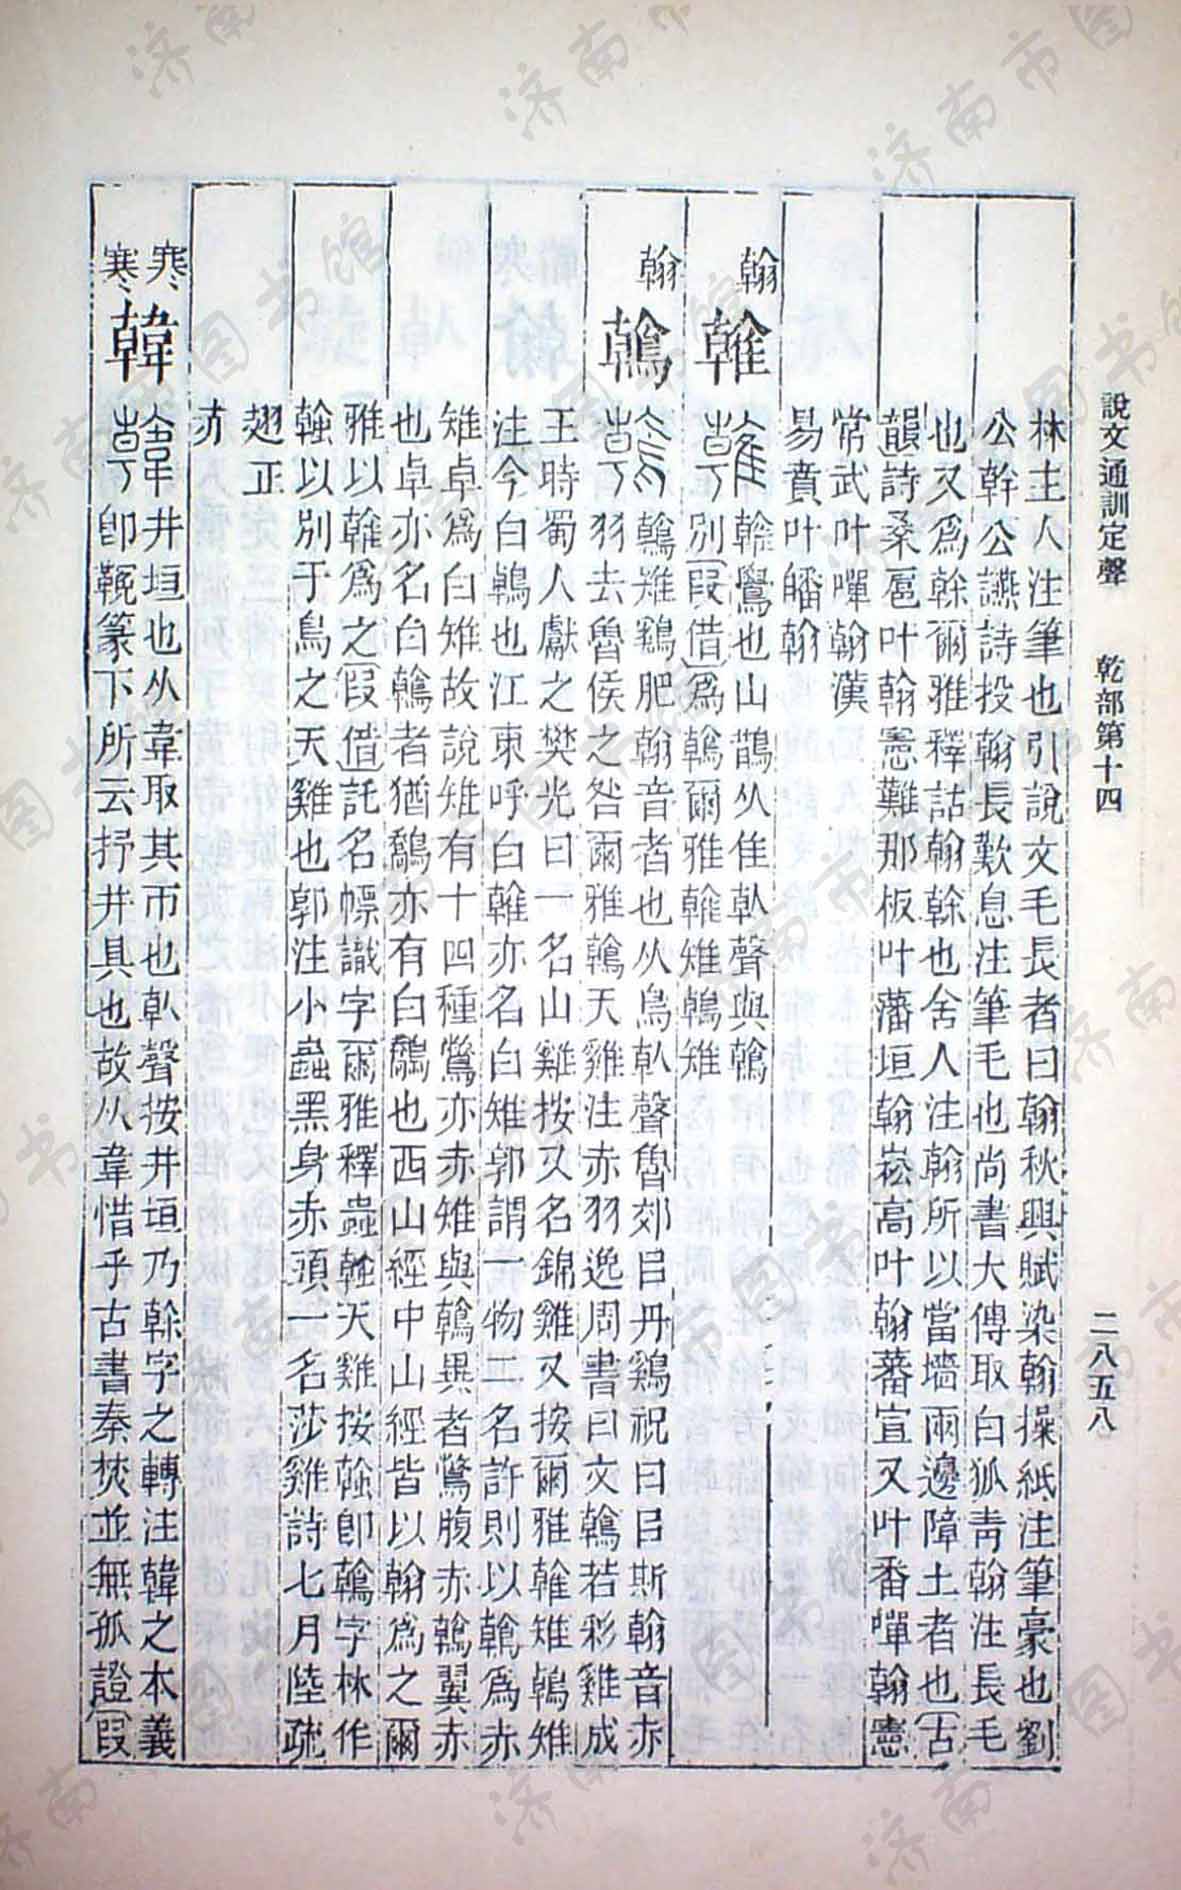 說文通訓定聲　乾部第十四　二八五八
林主人注筆也引說文毛長者曰翰秋興賦染翰操紙注筆豪也劉
公幹公讌詩投翰長歎息注筆毛也尚書大傳取白狐青翰注長毛
也又爲榦爾雅釋詁翰榦也舍人注翰所以當牆兩邊障土者也古
韻詩桑扈叶翰憲難那板叶藩垣翰崧高叶翰蕃宣又叶番嘽翰憲
常武叶嘽翰漢
易賁叶皤翰
翰
雗
雗鷽也山鵲从隹倝聲與鶾
別叚借爲鶾爾雅雗雉鵫雉
翰
鶾
鶾雉鷄肥翰音者也从鳥倝聲魯郊㠯丹鷄祝曰㠯斯翰音赤
羽去魯侯之咎爾雅鶾天雞注赤羽逸周書曰文鶾若彩雞成
王時蜀人獻之樊光曰一名山雞按又名錦雞又按爾雅雗雉鵫雉
注今白鵫也江東呼白雗亦名白雉郭謂一物二名許則以鶾爲赤
雉卓爲白雉故說雉有十四種鷩亦赤雉與鶾異者鷩腹赤鶾翼赤
也卓亦名白鶾者猶鷊亦有白鷊也西山經中山經皆以翰爲之爾
雅以雗爲之叚借託名幖識字爾雅釋蟲螒天雞按螒卽鶾字林作
螒以別于鳥之天雞也郭注小蟲黑身赤頭一名莎雞詩七月陸疏
翅正
赤
寒
寒
韓
井垣也从韋取其帀也倝聲按井垣乃榦字之轉注韓之本義
卽䩩篆下所云抒井具也故从韋惜乎古書秦焚並無孤證叚